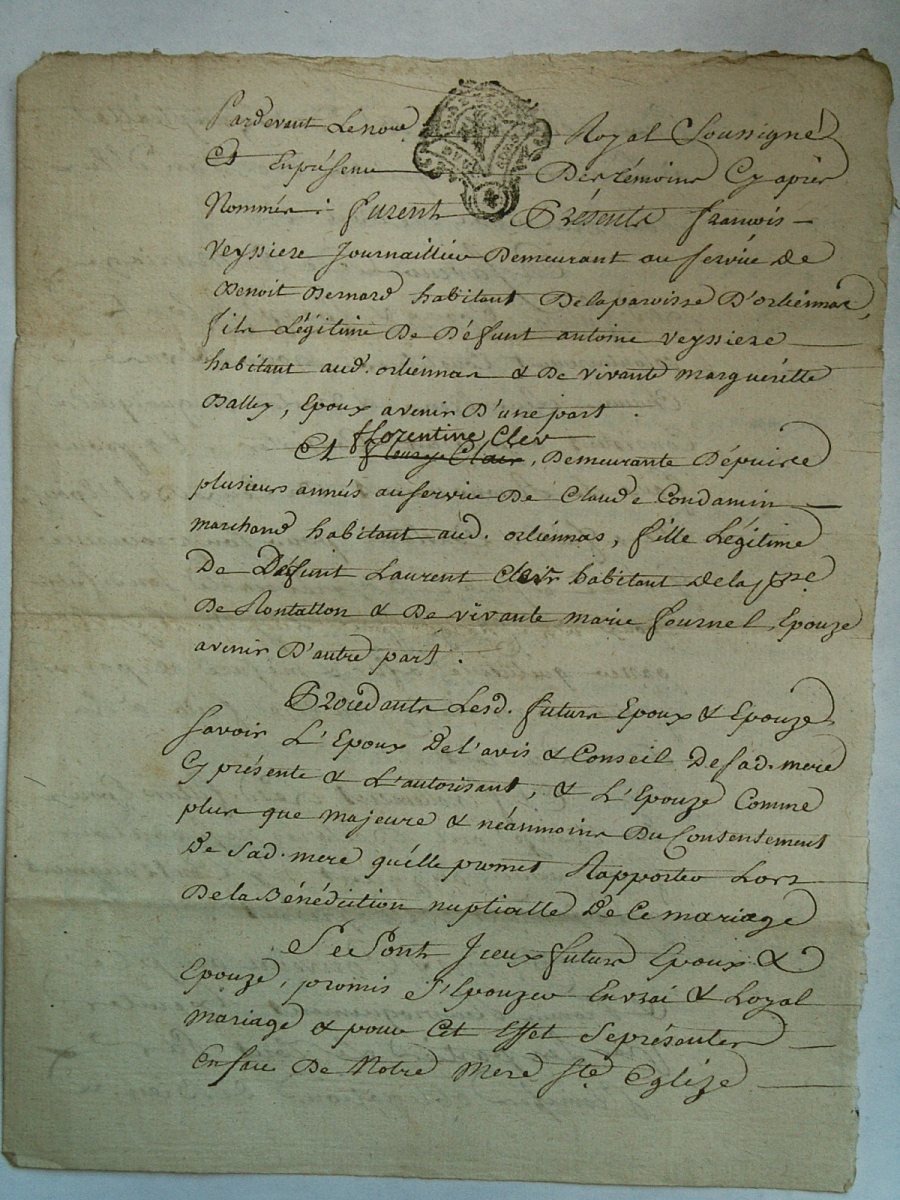 Pardevant Le noue Royal Soussigné
Et En présence Des témoins Cy après
Nommés : furent Présents françois
Veyssiere Journaillier Demeurant au service de
Benoit Bernard habitant De la paroisse D'orliennas,
fils Légitime De Défunt antoine Veyssiere
habitant aud. orliennas & De vivante marguéritte
Balley, Epoux avenir D'une part.
florentine Cler
Et Clair, Demeurante Dépuis
plusieurs annés au service De Claude Condamin
marchand habitant aud. orliennas, fille Légitime
De Défunt Laurent Cler habitant de la psse
De Rontallon & De vivante marie fournel, Epouze
avenir D'autre part.
Procédants Lesd. futurs Epoux & Epouze
savoir L'Epoux De l'avis & Conseil De sad. mere
Cy présente & L'autorisant, & L'Epouze Comme
plus que majeure & néanmoins Du Consentement
De sad. mere qu'elle promet Rapporter Lors
De la Bénédiction nuptialle De Ce mariage
Se Sont Jceux futurs Epoux &
Epouze, promis S'Epouzer En vrai & Loyal
mariage & pour Cet Effet Se présenter
En face De Notre Mere Ste. Eglize